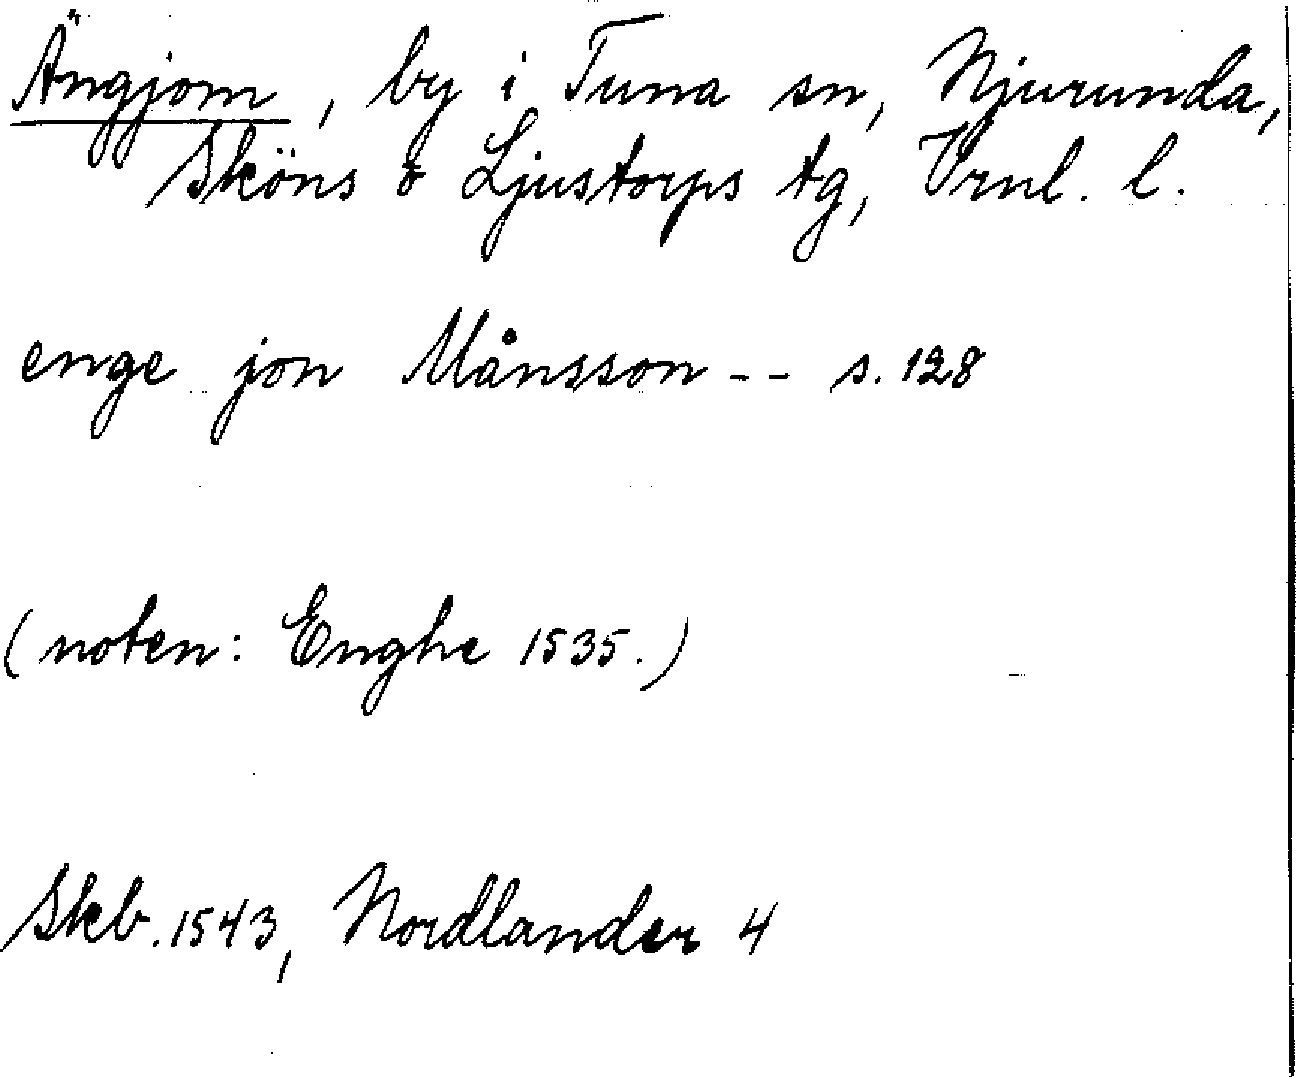 Ängjom, by i Tuna sn, Njurunda,
Sköns o Ljustorps tg, Vrnl. l.
enge jon Månsson -- s. 128
(noten: Enghe 1535.)
Skb. 1543, Nordlander 4